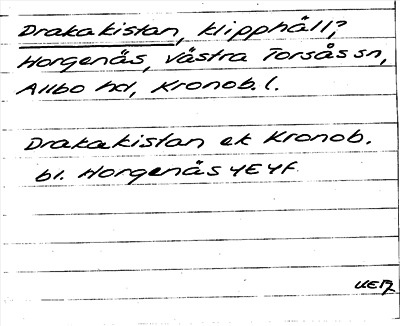 Drakakistan, klipphäll?
Horgenäs, västra Torsås sn,
Allbo hd, Kronob. l.
Drakakistan ek Kronob.
bl. Horgenäs 4E4f